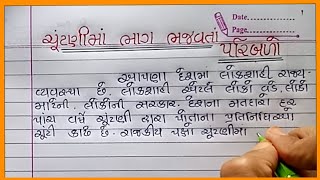 Date.
Page.
ચૂંટણીમાં ભાગ ભજવતાં પરિબળો
આપણા દેશમાં લોકશાહી રાજ્ય-
વ્યવસ્થા છે. લોકશાહી એટલે લોકો વડે, લોકો
માટેની, લોકોની સરકાર. દેશના મતદારો દર
પાંચ વર્ષે ચૂંટણી દ્વારા પોતાના પ્રતિનિધિઓ
ચૂંટી કાઢે છે. રાજકીય પક્ષો ચૂંટણીમાં